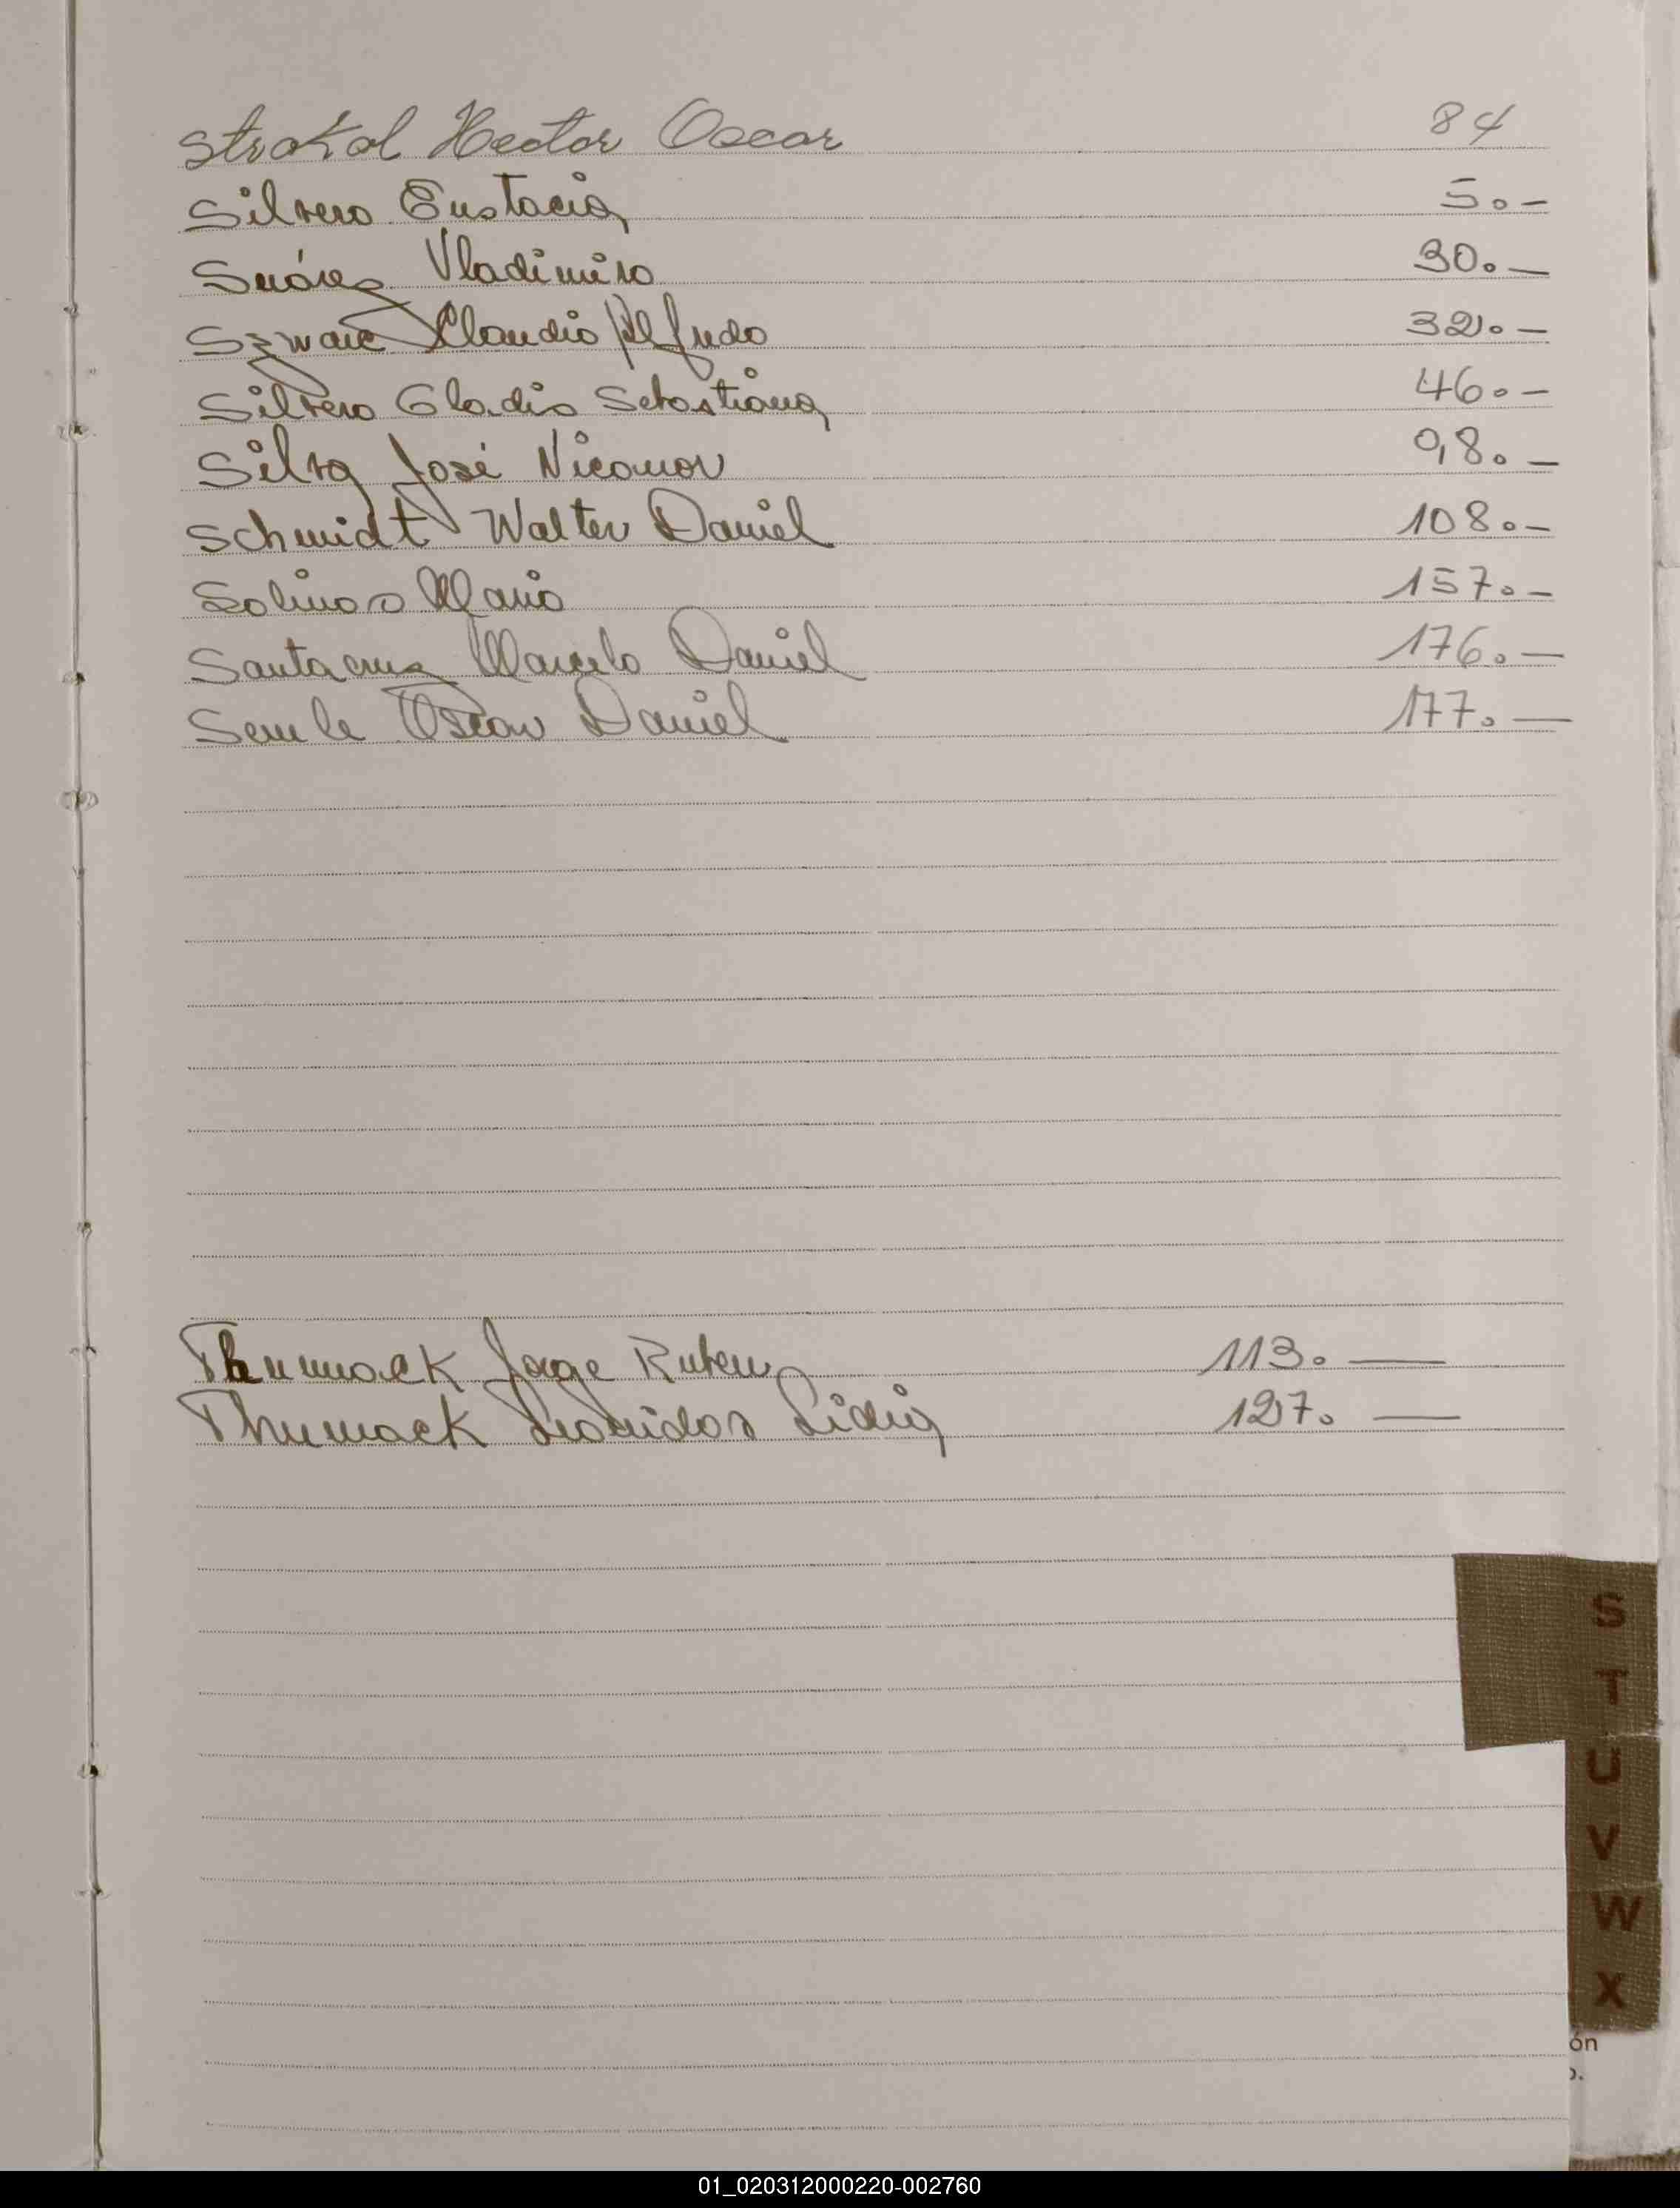 Strakal Hector Oscar 84
Silvero Eustacia 5.-
Suárez Vladimiro 30.-
Szwaic Claudio Alfredo 32.-
Silvero Gladis Sebastiana 46.-
Silva José Nicanor 98.-
Schmidt Walter Daniel 108.-
Salinas Mario 157.-
Santa cruz Marcelo Daniel 176.-
Semle Oscar Daniel 177.-
Thumack Jorge Ruben 113.-
Thumack Leonidas Lidia 127.-
S
T
U
V
W
X
ón
o.
01_020312000220-002760